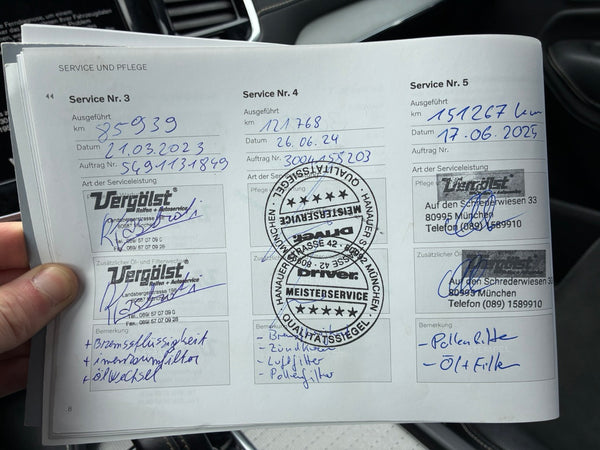 SERVICE UND PFLEGE
Service Nr. 3
Ausgeführt
km 85939
Datum 21.03.2023
Auftrag Nr. 5491131849
Art der Serviceleistung
Vergölst
Reifen + Autoservice
Zusätzlicher Öl- und Filterwechsel
Vergölst
Reifen + Autoservice
Bemerkung
+ Bremsflüssigkeit
+ innenraumfilter
+ ölwechsel
8
Service Nr. 4
Ausgeführt
km 121.768
Datum 26.06.24
Auftrag Nr. 3004158203
Art der Serviceleistung
QUALITÄTSSIEGEL
MEISTERSERVICE
DRIVER
HANAUER STRASSE 42 · 80992 MÜNCHEN
driver
MEISTERSERVICE
QUALITÄTSSIEGEL
Bemerkung
- Luftfilter
- Pollenfilter
Service Nr. 5
Ausgeführt
km 151267 km
Datum 17.06.2025
Auftrag Nr.
Art der Serviceleistung
Vergölst
Auf den Schrederwiesen 33
80995 München
Telefon (089) 1589910
Auf den Schrederwiesen 33
80995 München
Telefon (089) 1589910
Bemerkung
- Öl + Filter